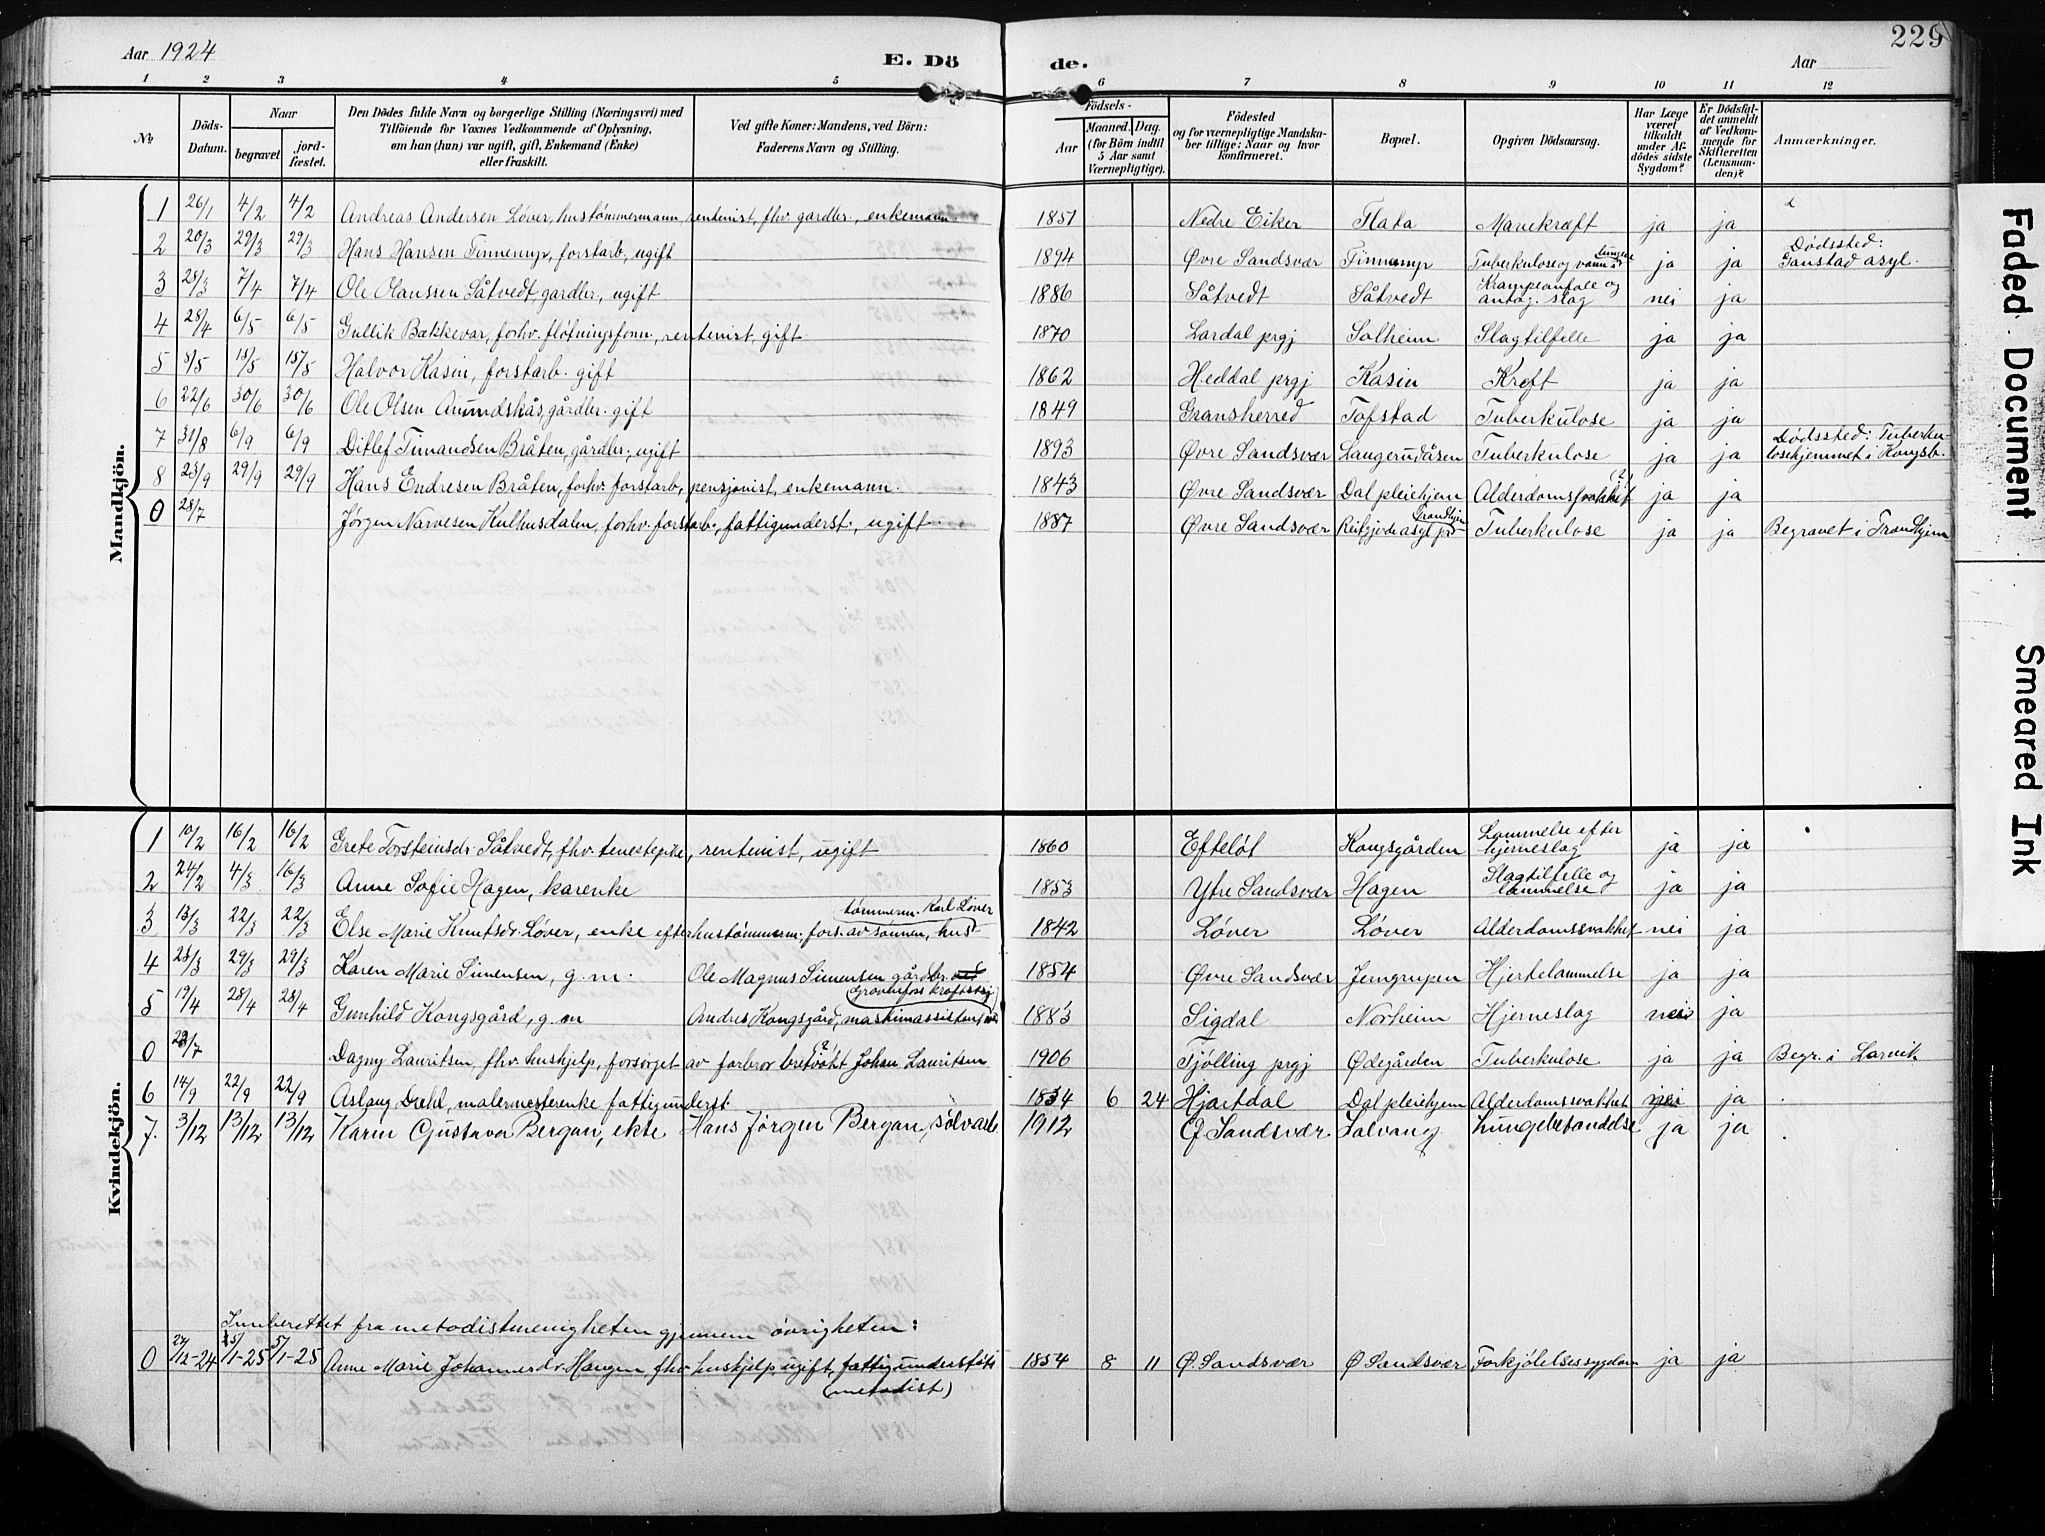 229
Aar 1924
E. Dö
de.
Aar
1 2 3 4 5 6 7 8 9 10 11 12
No
Döds-Datum.
Naar
begravet
jordfæstet.
Den Dödes fulde Navn og borgerlige Stilling (Næringsvei) med
Tilföiende for Voxnes Vedkommende af Oplysning,
om han (hun) var ugift, gift, Enkemand (Enke)
eller fraskilt.
Ved gifte Koner: Mandens, ved Börn:
Faderens Navn og Stilling.
Födsels-
Aar
Maaned. Dag.
(for Börn indtil
5 Aar samt
Værnepligtige).
Födested
og for værnepligtige Mandska-
ber tillige: Naar og hvor
konfirmeret.
Bopæl.
Opgiven Dödsaarsag.
Har Læge
været
tilkaldt
under Af-
dödes sidste
Sygdom?
Er Dödsfal-
det anmeldt
af Vedkom-
mende for
Skifteretten
(Lensman-
den)?
Anmærkninger.
Mandkjön.
1 26/1 4/2 4/2 Andreas Andersen Løver, hustømmermann, rentenist, fhv. gardbr., enkemann 1851 Nedre Eiker Flata Marekræft ja ja
2 20/3 29/3 29/3 Hans Hansen Finnemyr, forstarb, ugift 1894 Øvre Sandsvær Finnemyr Tuberkulose og ja ja Dødssted:
Ganstad asyl.
3 28/3 7/4 7/4 Ole Olanssen Såtvedt, gardbr., ugift 1886 Såtvedt Såtvedt Krampeanfall og
antag. slag nei ja
4 28/4 6/5 6/5 Gullik Bakkevar, forhv. fløtningsform., rentenist, gift 1870 Lardal prgj Solheim Slagtilfelle ja ja
5 8/5 15/5 15/5 Halvor Kasin, forstarb. gift 1862 Heddal prgj Kasin Kreft ja ja
6 22/6 30/6 30/6 Ole Olsen Amundskås, gårdbr. gift 1849 Gransherred Tofstad Tuberkulose ja ja
7 31/8 6/9 6/9 Ditlef Timandsen Bråten, gårdbr., ugift 1893 Øvre Sandsvær Langerudåsen Tuberkulose ja ja Dødssted: Tuberku-
losehjemmet i Kongsb.
8 23/9 29/9 29/9 Hans Endresen Bråten, forhv. forstarb, pensjonist, enkemann. 1843 Øvre Sandsvær Dal pleiehjem Alderdomssvakhet (?) ja ja
0 28/7 Jørgen Narvesen Kulhusdalen, forhv. forstarb., fattigunderst., ugift. 1887 Øvre Sandsvær Reitgjerde asyl Trondhjem Tuberkulose ja ja Begravet i Trondhjem
Kvindekjön.
1 10/2 16/2 16/2 Grete Torsteinsdr. Såtvedt, fhv. tenestepike, rentenist, ugift 1860 Efteløt Kongsgården Lammelse efter
hjerneslag ja ja
2 24/2 4/3 16/3 Anne Sofie Hagen, kårenke 1853 Ytre Sandsvær Hagen Slagtilfelle og
lammelse ja ja
3 13/3 22/3 22/3 Else Marie Knutsdr. Løver, enke efter hustømmerm., fors. av sønnen, hus-
tømmerm. Karl Løver 1842 Løver Løver Alderdomssvakhet nei ja
4 23/3 29/3 29/3 Karen Marie Simensen, g.m. Ole Magnus Simensen gårdbr. 1854 Øvre Sandsvær Jerngrupen Hjertelammelse ja ja
5 19/4 28/4 28/4 Gunhild Kongsgård, g.m Andres Kongsgård, maskinassistent
Gravenfoss kraftstasj 1883 Sigdal Norheim Hjerneslag nei ja
0 23/7 Dagny Lauritsen, fhv. hushjelp, forsørget av farbror brevoks? Johan Lauritsen 1906 Tjølling prgj Ødegården Tuberkulose ja ja Begr. i Larvik
6 14/9 22/9 22/9 Aslaug Dæhl, malermesterenke fattigunderst. 1834 6 24 Hjartdal Dal pleiehjem Alderdomssvakhet nei ja
7. 3/12 13/12 13/12 Karin Gustava Bergan, ekte Hans Jørgen Bergan, sølvarb. 1912 Ø. Sandsvær Solvang Lungebetendelse ja ja
Innberettet fra metodistmenigheten gjennem øvrigheten:
0 27/12-24 5/1-25 5/1-25 Anne Marie Johannesdr. Haugen, fhv. hushjelp, ugift, fattigunderstøts
(metodist) 1854 8 11 Ø. Sandsvær Ø Sandsvær Forkjølelsessygdom ja ja
Faded Document
Smeared Ink